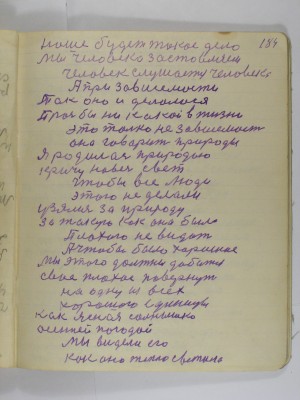 наше будет такое дело 184
Мы человека застоимся
Человек слушает человека
А при зависемости
Так оно и делолося
Про бы на какой в жизни
это только не зависемост
она говарит природы
Я родилася природаю
кричу на весь свет
чтобы все люди
этого не делали
взялися за природу
За такую как она была
Плохого не видят
А чтобы было харошое
Мы этого должны дабится
свое плахое повернут
на одну и всех
хорошого единицу
как ясная солнышко
осенней погодой
Мы видели его
как оно тепло светило